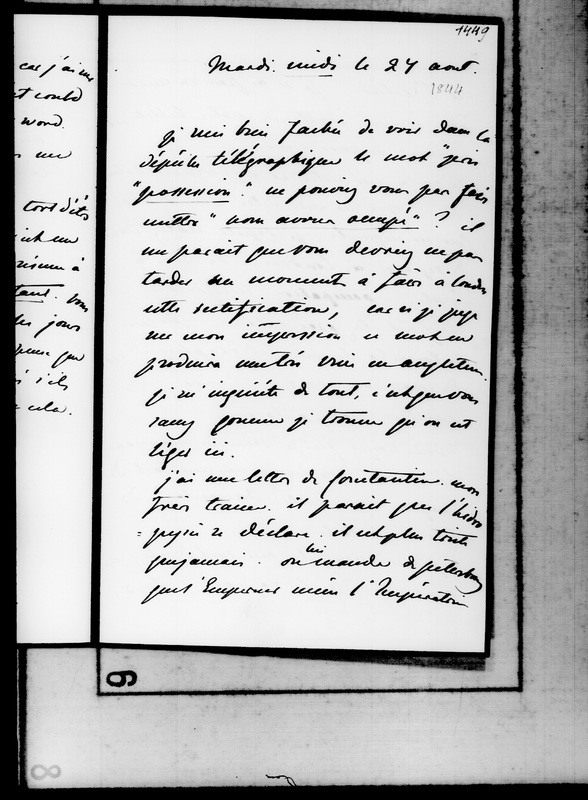 1449
Mardi. midi le 27 aout.
1844
je suis bien fachée de voir dans la
dépêche télégraphique le mot "pris
"possession". ne pouviez vous pas faire
mettre "nous avons occupé"? il
me parait que vous devriez ne pas
tarder un moment à faire à Londres
cette rectification, car si je juge
sur mon impression ce mot en
produira une très vive en angleterre.
je m'inquiète de tout, c'est que vous
savez comme je trouve qu'on est
léger ici.
j'ai une lettre de Constantin. mon
frère traine. il parait que l'hydro
= pysie se déclare. il est plus triste
que jamais. on lui mande de Petersbourg
que l'Empereur mène l'Impératrice
car j'aime
et could
word.
tout d'être
tant. vous
les jours
pense que
s'ils
cela.
6
8